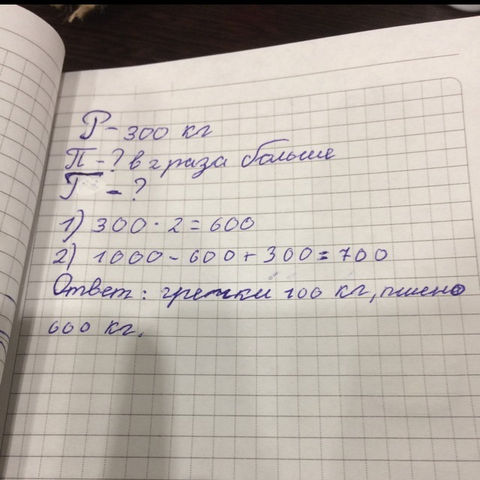 Р - 300 кг
П - ? в 2 раза больше
Г - ?
1) 300 · 2 = 600
2) 1000 - 600 + 300 = 700
Ответ: гречки 100 кг, пшено
600 кг.